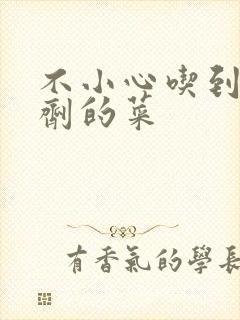 不小心喫到
劑的菜
有香氣的學長